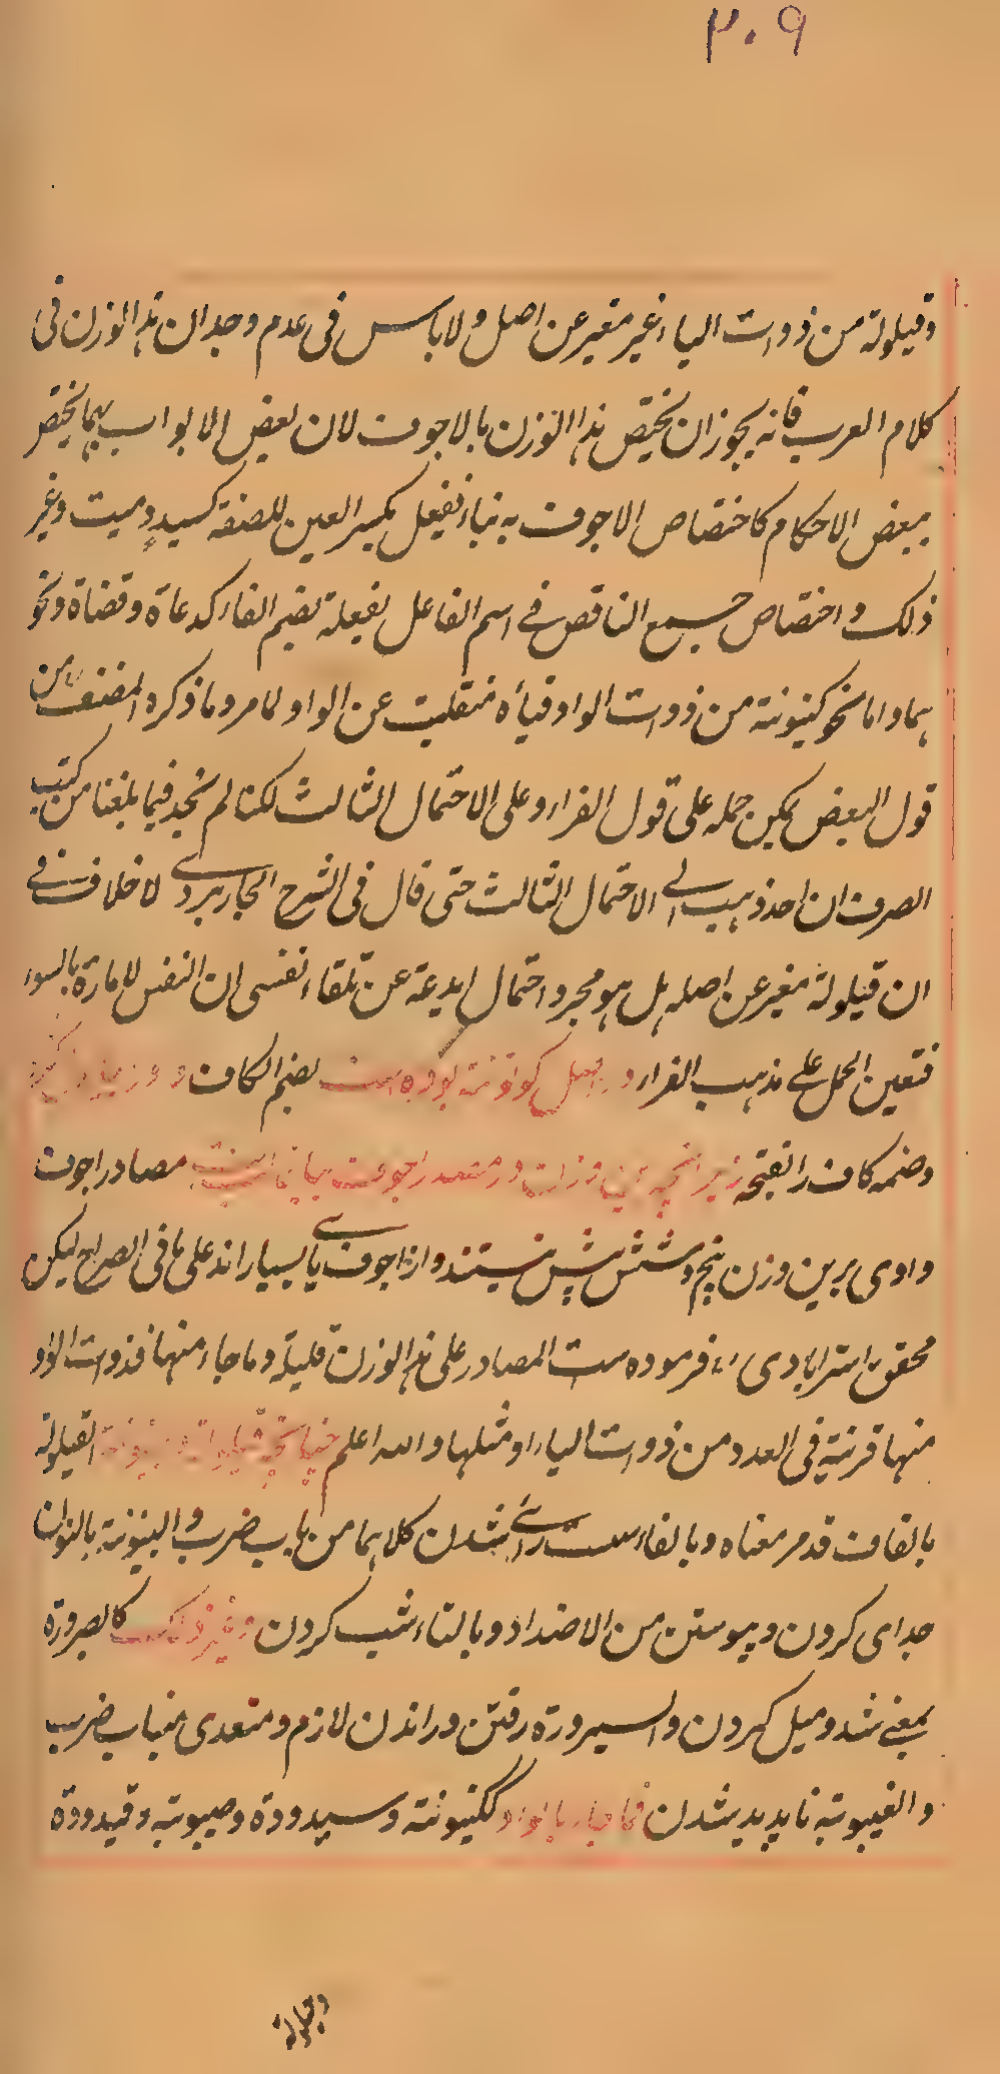 ۳۰۹
وقیلولة من ذوات الیاء غیر مغیر عن اصل ولا باس فی عدم وجدان هذا الوزن فی
کلام العرب فانه یجوز ان یختص هذا الوزن بالاجوف لان بعض الابواب بها یختص
ببعض الاحکام کاختصاص الاجوف به بناء فیعل بکسر العین للصفة کسید ومیت وغیر
ذلک و اختصاص جمیع الناقص فی اسم الفاعل بفعلة بضم الفاء کدعاة وقضاة ونحو
هما واما نحو کینونة من ذوات الواو فیاءه منقلبت عن الواو لما مر وما ذکره المصنف من
قول البعض یمکن حمله علی قول الفراء وعلی الاحتمال الثالث لکنا لم نجد فیما بلغنا من کتب
الصرف ان احد ذهب الی الاحتمال الثالث حتی قال فی الشرح الجاربردی لا خلاف فی
ان قیلولة مغیر عن اصله بل هو مجرد احتمال ابدعة عن تلقاء نفسی ان النفس لامارة بالسوء
فتعین الحمل علی مذهب الفراء در اصل کونونة بوده است بضم الکاف
وضمه کاف را بفتحه زیرا نچه این وزن در مصدر اجوف مصادر اجوف
واوی برین وزن پنج وشش بیش نیستند واز اجوف یای بسیار اند علی ما فی الصراح لیکن
محقق استرابادی فرموده ست المصادر علی هذا الوزن قلیلة وما جاء منها فذوات الواو
منها قریبة فی العدد من ذوات الیاء او مثلها والله اعلم چنانچه قیلولة القیلولة
بالقاف قد مر معناه وبالفاء سست رای شدن کلاهما من باب ضرب والبینونة بالنون
جدای کردن و پیوستن من الاضداد وبالتاء شب کردن وغیر ذلک کالصرورة
بمعنے شد ومیل کردن والسیرورة رفتن وراندن لازم ومتعدی منباب ضرب
والغیبوبة ناپدید شدن فما جاء بالواو ککینونة وسیدودة وصیبوبة وقیدودة